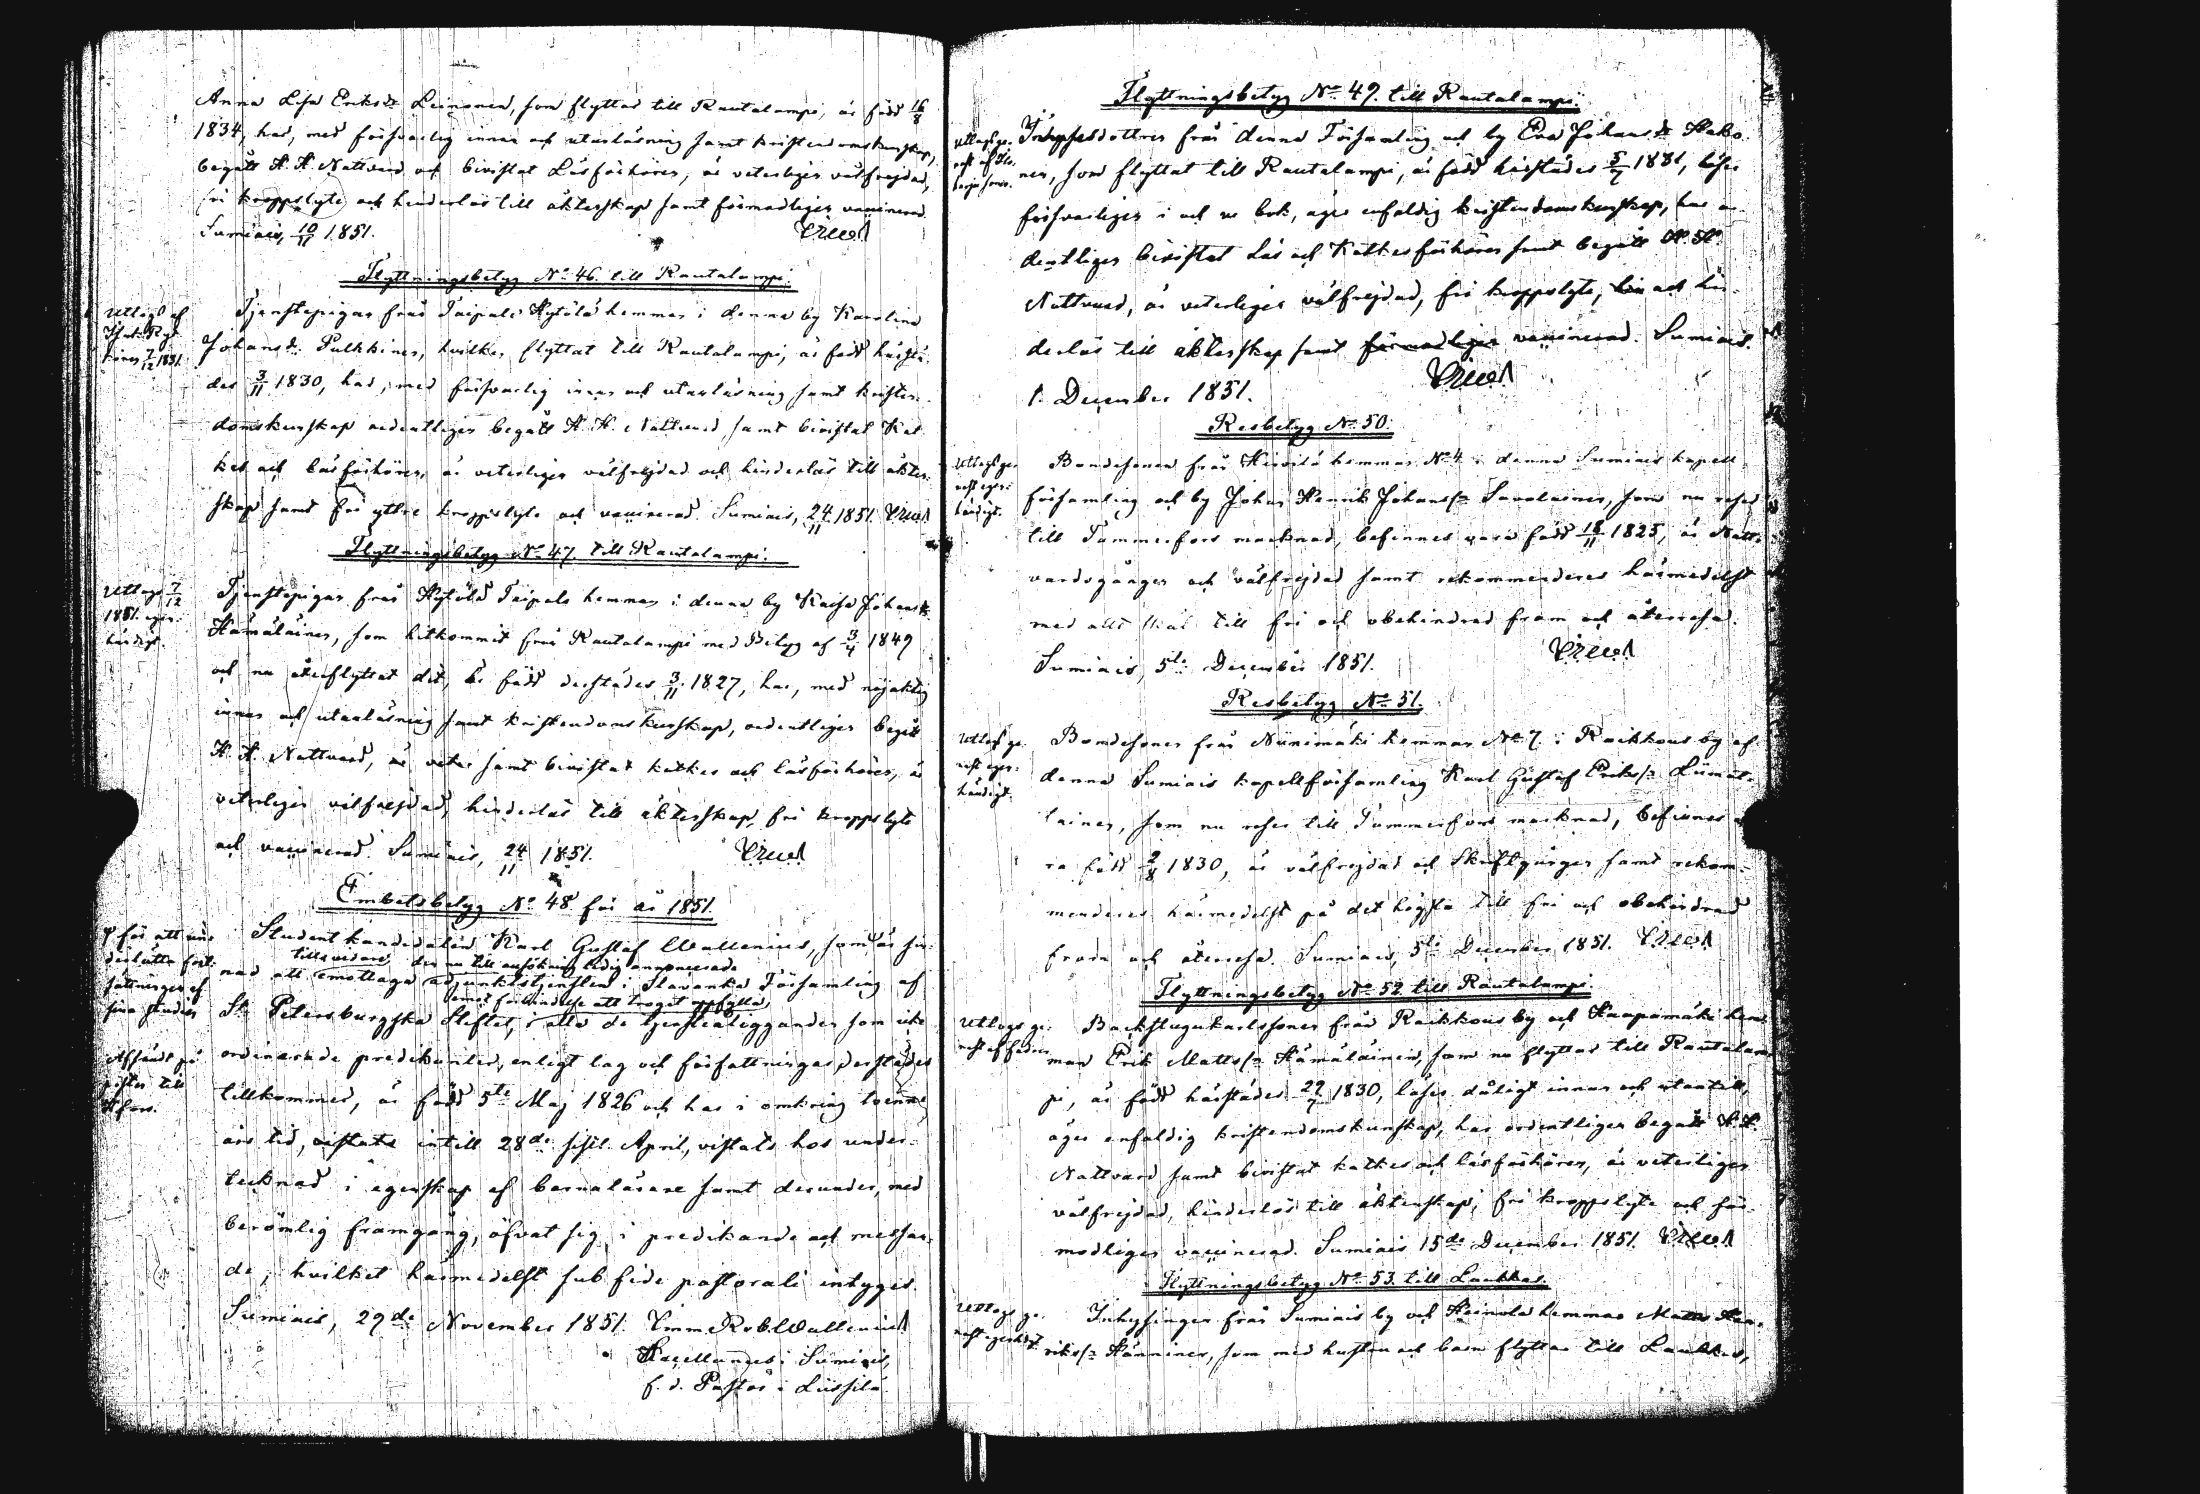 Anna Lisa Eriksdr Leinonen, som flyttar till Rautalampi, är född 16/8
1834, har, med försvarlig innan och utanläsning samt kristendomskunskap,
begått H. H. Nattvard och bivistat Läsförhören, är veterligen välfrejdad,
fri kroppslyte och hinderlös till äktenskap samt förmodligen vaccinerad.
Sumiais, 10/11 1851.
Flyttningsbetyg No 46. till Rautalampi.
Uttagit af
7/12 1851.
Tjenstepigan från Taipale Hytölä hemman i denna by Karolina
Johansdr Pulkkinen, hvilken flyttat till Rautalampi, är född härstä-
des 3/11 1830, har, med försvarlig innan och utanläsning samt kristen-
domskunskap ordentligen begått H. H. Nattvard samt bivistat Kat-
kes och läsförhören, är veterligen välfrejdad och hinderlös till äkten-
skap samt fri yttre kroppslyte och vaccinerad. Sumiais, 24/11 1851.
Flyttningsbetyg No 47. till Rautalampi.
Uttags 7/12
1851. egen-
händigt.
Tjenstepigan från Hytölä Taipale hemman i denna by Kaisa Johansdr
Hämäläinen, som hitkommit från Rautalampi med Betyg af 3/4 1849
och nu återflyttat dit, är född derstädes 3/11 1827, har, med nöjaktig
innan och utanläsning samt kristendomskunskap, ordentligen begått
H. H. Nattvard, är veter samt bivistat katkes och läsförhören, är
veterligen välfrejdad, hinderlös till äktenskap, fri kroppslyte
och vaccinerad. Sumiais, 24/11 1851.
Embetsbetyg No 48 för år 1851.
för att vin-
fort-
sättningen af
sina studier
Afsändt på
posten till
H:fors.
Studentkandidaten Karl Gustaf Wallenius, som är sin-
tillsvidare den nu till ansökning ledig annoncerade
nad att emottaga adjunktstjensten i Slavanka Församling af
emot förbindelse att troget uppfylla
St. Petersburgska Stiftet, i alla de tjenståligganden som icke
ordinerade predikanter, enligt lag och författningar, derstädes
tillkommer, är född 5te Maj 1826 och har i omkring tvenne
års tid, vistats intill 28de sistl. April, vistats hos under-
tecknad i egenskap af barnalärare samt derunder, med
berömlig framgång, öfvat sig i predikande och messan-
de, hvilket härmedelst sub fide pastorali intygas.
Sumiais, 29de November 1851. Emm. Rob. Wallenius
Kapellanus i Sumiais,
f. d. Pastor i Liissilä.
Flyttningsbetyg No 49. till Rautalampi.
Inhysesdottren från denna Församling och by Eva Johansdr Hako-
nen, som flyttat till Rautalampi, är född härstädes 5/7 1831, läser
försvarligen i och ur bok, äger enfaldig kristendomskunskap, har or-
dentligen bivistat Läs och Katkesförhören samt begått H. H.
Nattvard, är veterligen välfrejdad, fri kroppslyte, och hin-
derlös till äktenskap samt förmodligen vaccinerad. Sumiais.
1. December 1851.
Resbetyg No 50.
Uttags ge-
nast egen-
händigt.
Bondesonen från hemman No 4 i denna Sumiais kapell-
församling och by Johan Henrik Johansson Savolainen, som nu reser
till Tammerfors marknad, befinnes vara född 18/11 1825, är Natt-
vardsgången och välfrejdad samt rekommenderes härmedelst
med allt skäl till fri och obehindrad fram och återresa.
Sumiais, 5te December 1851.
Resbetyg No 51.
Uttags ge-
nast egen-
händigt.
Bondesonen från Niinimäki hemman No 7. i Raikkous by af
denna Sumiais kapellförsamling Karl Gustaf Eriksson Liimat-
tainen, som nu reser till Tammerfors marknad, befinnes va-
ra född 2/8 1830, är välfrejdad och Skriftgången samt rekom-
menderes härmedelst på det högsta till fri och obehindrad
fram och återresa. Sumiais, 5te December 1851.
Flyttningsbetyg No 52. till Rautalampi.
Uttags ge-
nast af fadren
Backstugukarlssonen från Raikkous by och Haapamäki hem-
man Erik Mattsson Hämäläinen, som nu flyttar till Rautalam-
pi, är född härstädes 29/7 1830, läser dåligt innan och utantill,
äger enfaldig kristendomskunskap, har ordentligen begått H. H.
Nattvard samt bivistat katkes och läsförhören, är veterligen
välfrejdad, hinderlös till äktenskap, fri kroppslyte och för-
modligen vaccinerad. Sumiais 15de December 1851.
Flyttningsbetyg No 53. till Laukkas.
Uttags ge-
nast
Inhysingen från Sumiais by och Heinola hemman Matts Hen-
riksson Hänninen, som med hustru och barn flyttar till Laukkas,